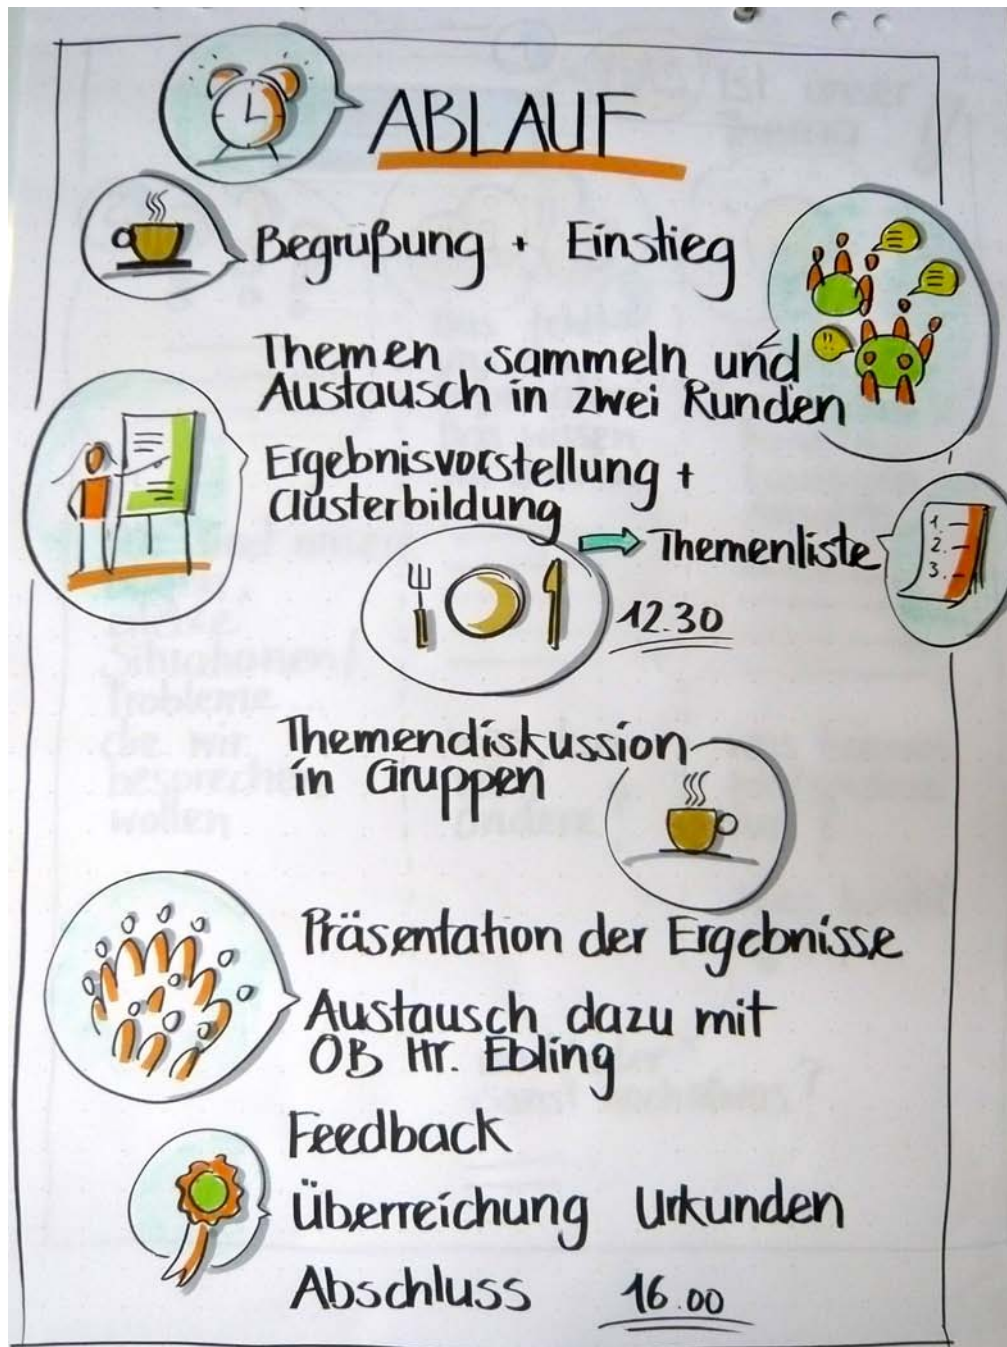 ABLAUF
Begrüßung + Einstieg
Themen sammeln und
Austausch in zwei Runden
Ergebnisvorstellung +
Clusterbildung
Themenliste
1.
2.
3.
12.30
Themendiskussion
in Gruppen
Präsentation der Ergebnisse
Austausch dazu mit
OB Hr. Ebling
Feedback
Überreichung Urkunden
Abschluss 16.00